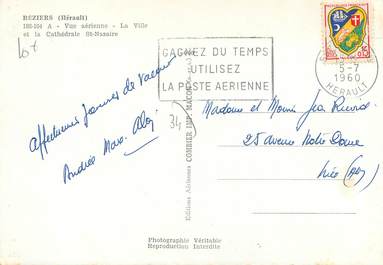 BÉZIERS (Hérault)
102-104 A - Vue aérienne - La Ville
et la Cathédrale St-Nazaire
GAGNEZ DU TEMPS
UTILISEZ
LA POSTE AÉRIENNE
5-7
1960
HERAULT
Affectueuses pensées de vacances
Andrée Marc
34
Editions Aériennes COMBIER IMP. MACON
Madame et Mr
25 avenue Notre Dame
Nice
Photographie Véritable
Reproduction Interdite